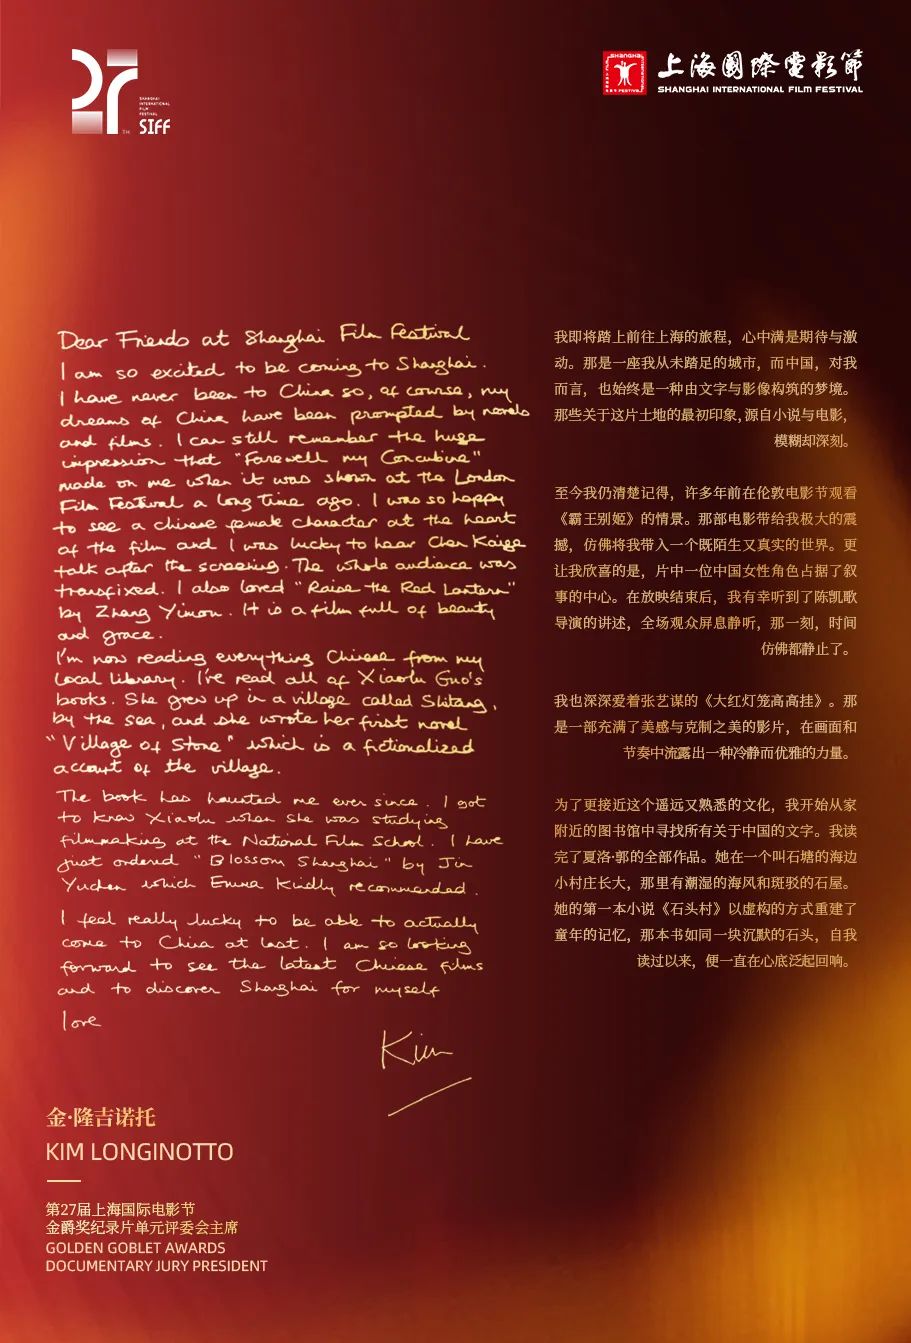 SHANGHAI
INTERNATIONAL
FILM
FESTIVAL
TM
SIFF
上海國際電影節
SHANGHAI INTERNATIONAL FILM FESTIVAL
Dear Friends at Shanghai Film Festival
I am so excited to be coming to Shanghai.
I have never been to China so, of course, my
dreams of China have been prompted by novels
and films. I can still remember the huge
impression that "Farewell my Concubine"
made on me when it was shown at the London
Film Festival a long time ago. I was so happy
to see a chinese female character at the heart
of the film and I was lucky to hear Chen Kaige
talk after the screening. The whole audience was
transfixed. I also loved "Raise the Red Lantern"
by Zhang Yimou. It is a film full of beauty
and grace.
I'm now reading everything Chinese from my
local library. I've read all of Xiaolu Guo's
books. She grew up in a village called Shitang,
by the sea, and she wrote her first novel
"Village of Stone" which is a fictionalized
account of the village.
The book has haunted me ever since. I got
to know Xiaolu when she was studying
filmmaking at the National Film School. I have
just ordered "Blossom Shanghai" by Jin
Yuchen which Emma kindly recommended.
I feel really lucky to be able to actually
come to China at last. I am so looking
forward to see the latest Chinese films
and to discover Shanghai for myself
love
Kim
我即将踏上前往上海的旅程，心中满是期待与激
动。那是一座我从未踏足的城市，而中国，对我
而言，也始终是一种由文字与影像构筑的梦境。
那些关于这片土地的最初印象，源自小说与电影，
模糊却深刻。
至今我仍清楚记得，许多年前在伦敦电影节观看
《霸王别姬》的情景。那部电影带给我极大的震
撼，仿佛将我带入一个既陌生又真实的世界。更
让我欣喜的是，片中一位中国女性角色占据了叙
事的中心。在放映结束后，我有幸听到了陈凯歌
导演的讲述，全场观众屏息静听，那一刻，时间
仿佛都静止了。
我也深深爱着张艺谋的《大红灯笼高高挂》。那
是一部充满了美感与克制之美的影片，在画面和
节奏中流露出一种冷静而优雅的力量。
为了更接近这个遥远又熟悉的文化，我开始从家
附近的图书馆中寻找所有关于中国的文字。我读
完了夏洛·郭的全部作品。她在一个叫石塘的海边
小村庄长大，那里有潮湿的海风和斑驳的石屋。
她的第一本小说《石头村》以虚构的方式重建了
童年的记忆，那本书如同一块沉默的石头，自我
读过以来，便一直在心底泛起回响。
金·隆吉诺托
KIM LONGINOTTO
第27届上海国际电影节
金爵奖纪录片单元评委会主席
GOLDEN GOBLET AWARDS
DOCUMENTARY JURY PRESIDENT